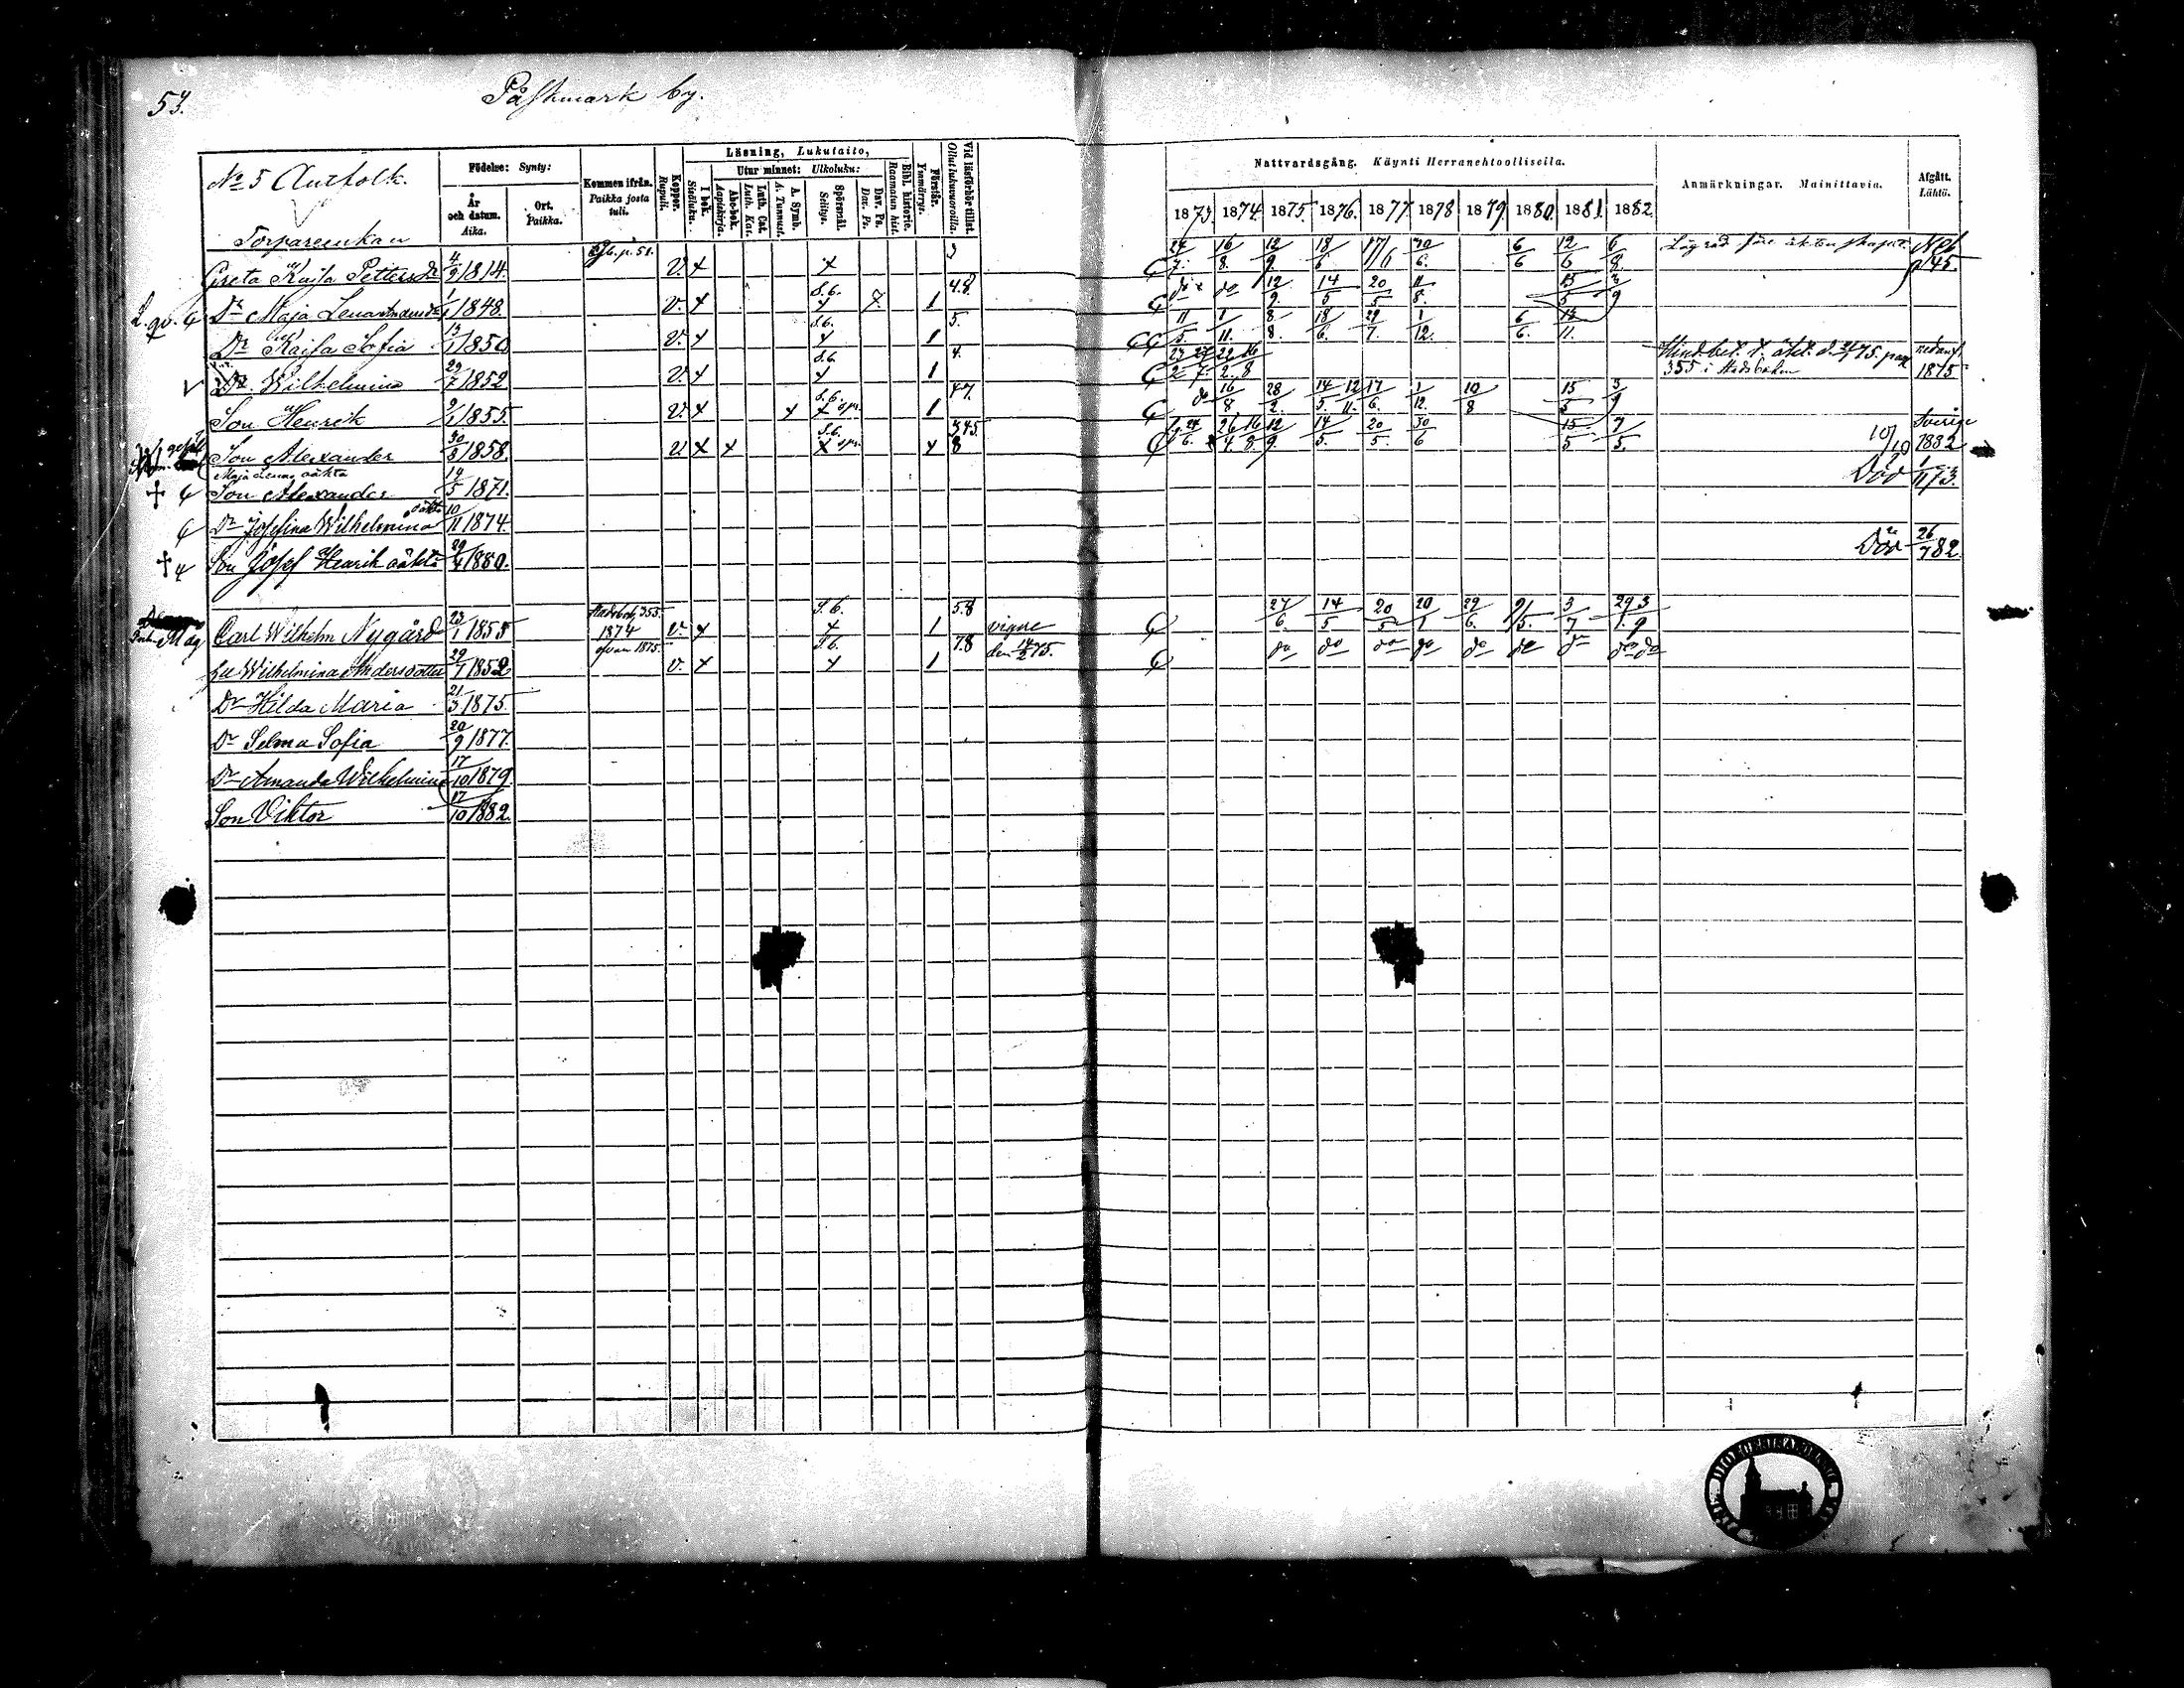 53.
Påskmark by.
No 5 Antfolk.
Födelse: Synty:
År och datum. Aika.
Ort. Paikka.
Kommen ifrån. Paikka josta tuli.
Koppor. Rupuli.
Läsning, Lukutaito,
I bok. Sisäluku.
Utur minnet: Ulkoluku:
Abc-bok. Aapiskirja.
Luth. Cat. Luth. Kat.
A. Symb. A. Tunnust.
Spörsmål. Selitys.
Dav. Ps. Dav. Ps.
Bibl. historie. Raamatun hist.
Förstår. Ymmärrys.
Vid läsförhör tillst. Ollut lukuvuoroilla.
Nattvardsgång. Käynti Herranehtoollisella.
1873. 1874. 1875. 1876. 1877. 1878 1879. 1880. 1881. 1882.
Anmärkningar. Mainittavia.
Afgått. Lähtö.
Torpareenkan
Greta Kajsa Petters Dr 4/9 1814. p. 51. v. x x 3 24/7. 16/8. 12/9. 18/6 17/6 30/6. 6/6 12/6 6/8.
p 45.
Dr Maja Lena Anders Dr 1/1 1848. v. x S.b. x 7 1 4.8. do do 12/9. 14/5 20/5 11/8. 15/5 3/9
Dr Kajsa Sofia 13/1 1850 v. x S.b. x 1 5. 11/5. 1/11. 8/8. 18/6. 29/7. 1/12. 6/6. 13/11.
Dr Wilhelmina 29/7 1852 v. x S.b. x 1 4.
355 i
nedanf. 1875
Son Henrik 9/1 1855. v. x x S.b. x 1 4.7. do 16/8 28/2. 14/5. 12/11. 17/6. 1/12. 10/8 15/5 3/9
Son Alexander 30/8 1858. v x x S.b. x x 3.4.5. 8 26/4. 16/8. 12/9. 14/5. 20/5. 30/6 15/5 7/5.
10/10 Sverige 1882
Maja Lenas oäkta
Son Alexander 19/5 1871. Död 1/11 73.
Dr Josefina Wilhelmina oäkta 10/11 1874.
Son Josef Henrik oäkta 29/4 1880. Död 26/7 82.
Carl Wilhelm Nygård 23/1 1855 355. 1874 v. x S.b. x 1 5.8 vigde 27/6. 14/5 20/5 20/1 29/6. 9/5. 3/7 29/1. 3/9
Hu Wilhelmina Andersdotter 29/7 1852 ofvan 1875. v. x S.b. x 1 7.8 den 14/2 75. do do do do do do do do do
Dr Hilda Maria 21/3 1875.
Dr Selma Sofia 20/9 1877.
Dr Amanda Wilhelmina 17/10 1879.
Son Viktor 17/10 1882.